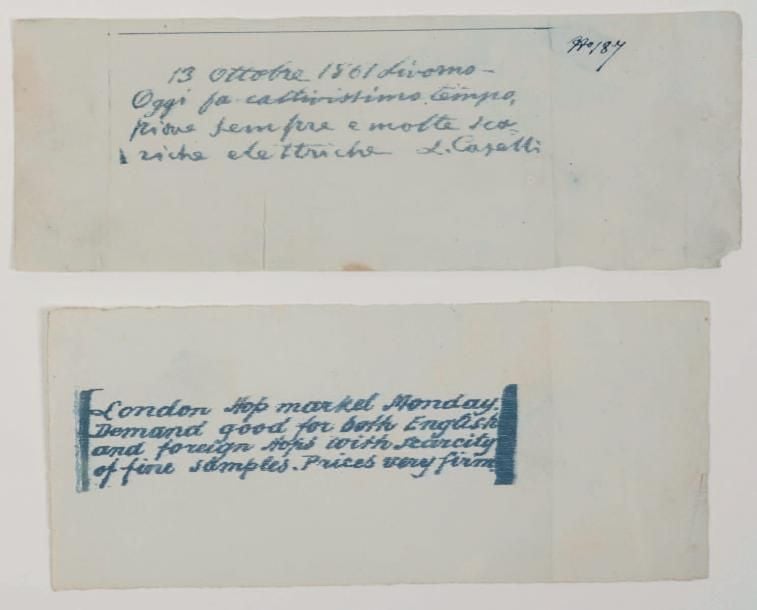 No 187
13 Ottobre 1861 Livorno-
Oggi fa cattivissimo tempo,
piove sempre e molte sca-
riche elettriche L. Caselli
London Hop market Monday.
Demand good for both English
and foreign Hops with scarcity
of fine samples. Prices very firm